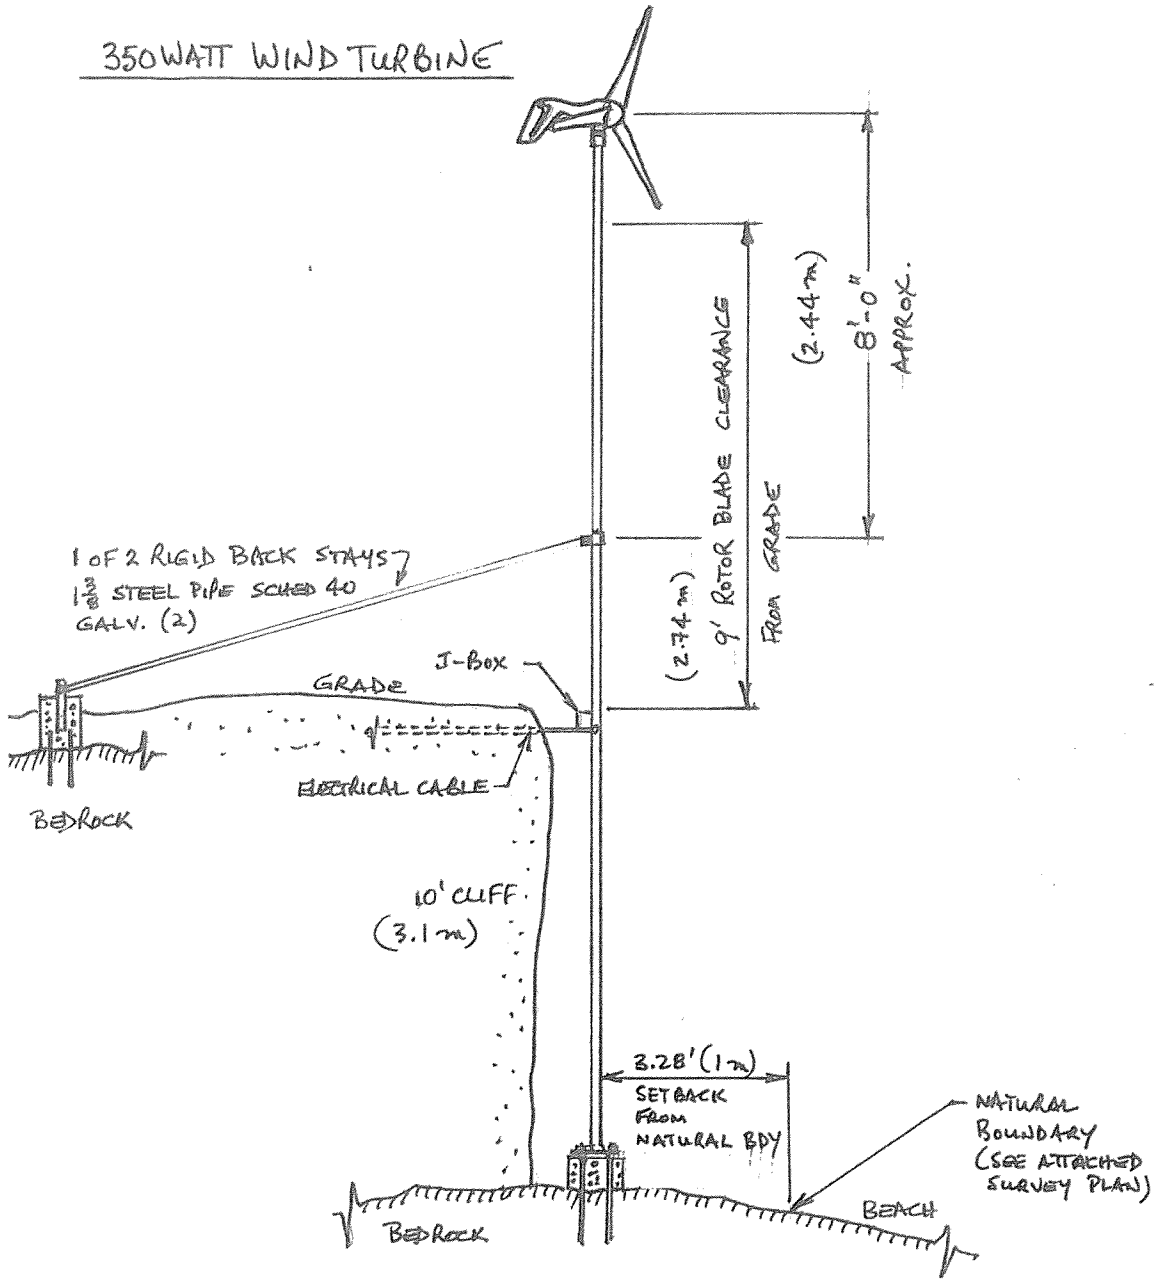 350WATT WIND TURBINE
(2.44m)
8'-0"
APPROX.
9' ROTOR BLADE CLEARANCE
FROM GRADE
(2.74m)
1 OF 2 RIGID BACK STAYS
1 3/8 STEEL PIPE SCHED 40
GALV. (2)
J-BOX
GRADE
ELECTRICAL CABLE
BEDROCK
10' CLIFF
(3.1m)
3.28' (1m)
SETBACK
FROM
NATURAL BDY
NATURAL
BOUNDARY
(SEE ATTACHED
SURVEY PLAN)
BEACH
BEDROCK